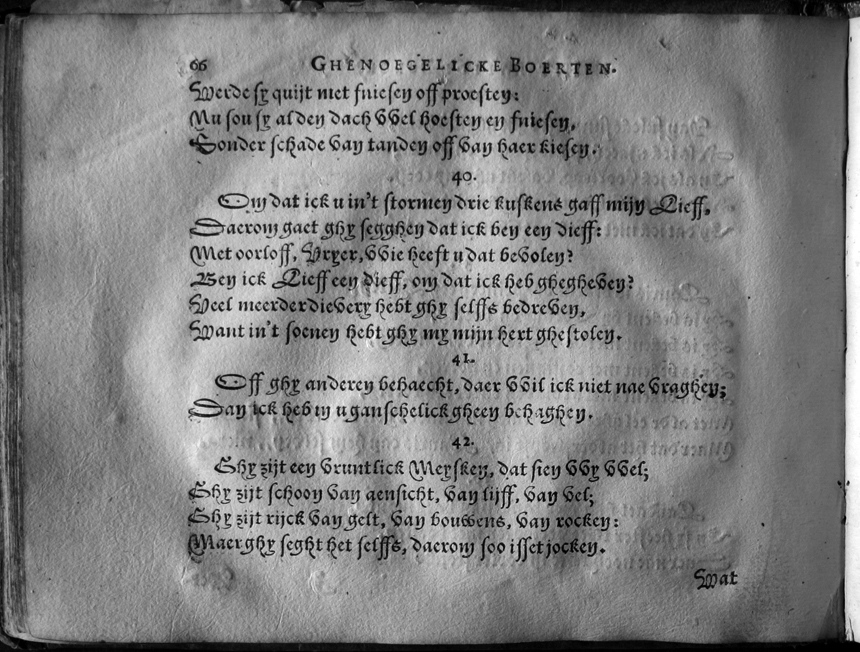 66 GHENOEGELICKE BOERTEN.
Werde sy quijt met fniesen off proesten:
Nu sou sy al den dach VVel hoesten en fniesen,
Sonder schade van tanden off van haer kiesen.
40.
Om dat ick u in't stormen drie kuskens gaff mijn Lieff,
Daerom gaet ghy segghen dat ick ben een dieff:
Met oorloff, Vryer, VVie heeft u dat bevolen?
Ben ick Lieff een dieff, om dat ick heb ghegheven?
Veel meerder dievery hebt ghy selffs bedreven,
Want in't soenen hebt ghy my mijn hert ghestolen.
41.
Off ghy anderen behaecht, daer VVil ick niet nae vraghen;
Dan ick heb in u ganschelick gheen behaghen.
42.
Ghy zijt een vruntlick Meysken, dat sien VVy VVel;
Ghy zijt schoon van aensicht, van lijff, van vel;
Ghy zijt rijck van gelt, van bouwens, van rocken:
Maer ghy seght het selffs, daerom soo isset jocken.
Wat